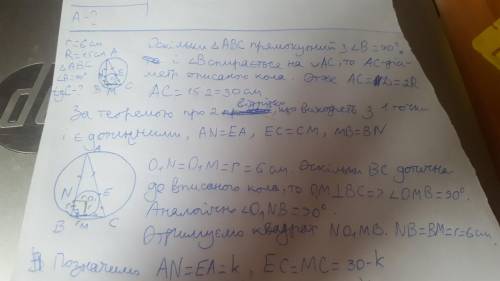 A-?
r=6см
R=15см
△ABC
∠B=90°
C-?
A
B M C
Оскільки △ABC прямокутний з ∠B=90°
і ∠B спирається на ∪AC, то AC-діаметр
описаного кола. Отже AC=2R
AC=15·2=30см.
За теоремою про 2 відрізки, що виходять з 1 точки
і є дотичними, AN=EA, EC=CM, MB=BN
A
N E
O₁
B M C
O₁N=O₁M=r=6см. Оскільки BC дотична
до вписаного кола, то OM⊥BC=>∠OMB=90°.
Аналогічно ∠O₁NB=90°.
Отримуємо квадрат NO₁MB. NB=BM=r=6см.
Позначимо AN=EA=k, EC=MC=30-k